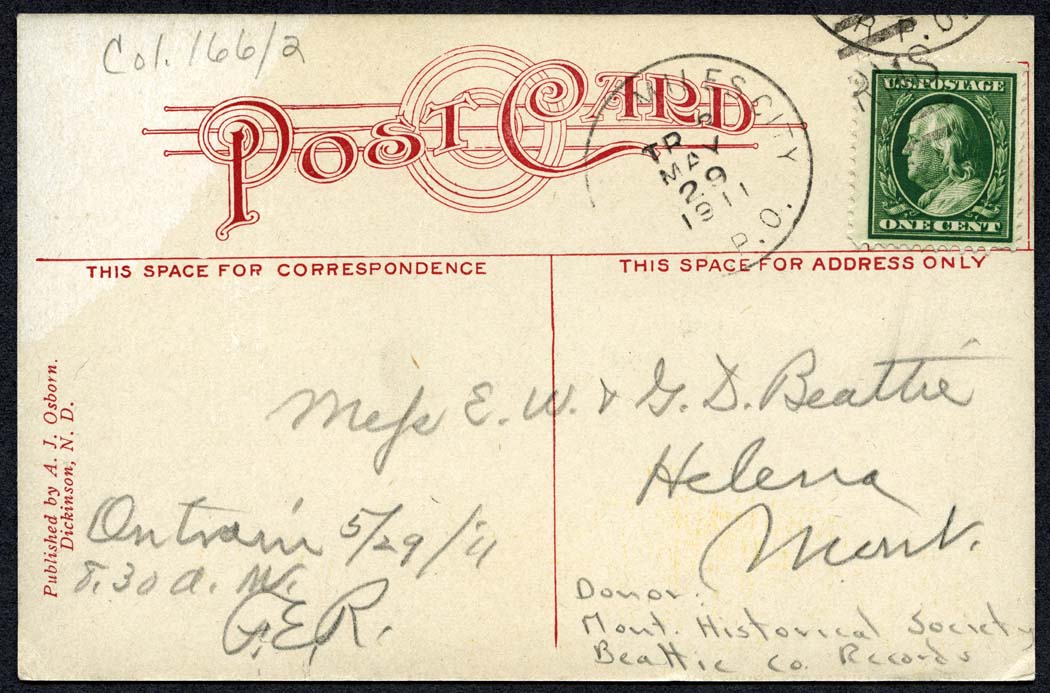 Col. 166/2
POST CARD
R.P.O.
RMS
MILES CITY
TR
MAY
29
1911
P.O.
U.S. POSTAGE
ONE CENT
THIS SPACE FOR CORRESPONDENCE
THIS SPACE FOR ADDRESS ONLY
Mess E. W. & G. D. Beattie
Helena
Mont.
On train 5/29/11
8.30 a. m.
E.R.
Published by A. J. Osborn.
Dickinson, N. D.
Donor:
Mont. Historical Society
Beattie Co. Records